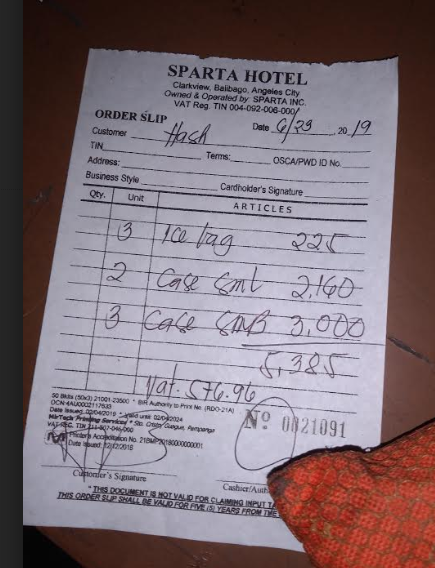 SPARTA HOTEL
Clarkview, Balibago, Angeles City
Owned & Operated by: SPARTA INC.
VAT Reg. TIN 004-092-006-000
ORDER SLIP
Date 6/23 2019
Customer Hash
TIN Terms: OSCA/PWD ID No.
Address:
Business Style Cardholder's Signature
Qty. Unit ARTICLES
3 Ice bag 225
2 Case Sml 2,160
3 Case SMB 3,000
5,385
Vat. 576.96
50 Bklts (50x3) 21001-23500 * BIR Authority to Print No. (RDO-21A)
Date Issued: 02/04/2019 * Valid until: 02/04/2024
MirTech Printing Services * Sto. Cristo Guagua, Pampanga
Printer's Accreditation No.
Date Issued: 12/12/2018
Nº 0821091
Customer's Signature
Cashier/Auth
* THIS DOCUMENT IS NOT VALID FOR CLAIMING INPUT TA
THIS ORDER SLIP SHALL BE VALID FOR FIVE (5) YEARS FROM THE